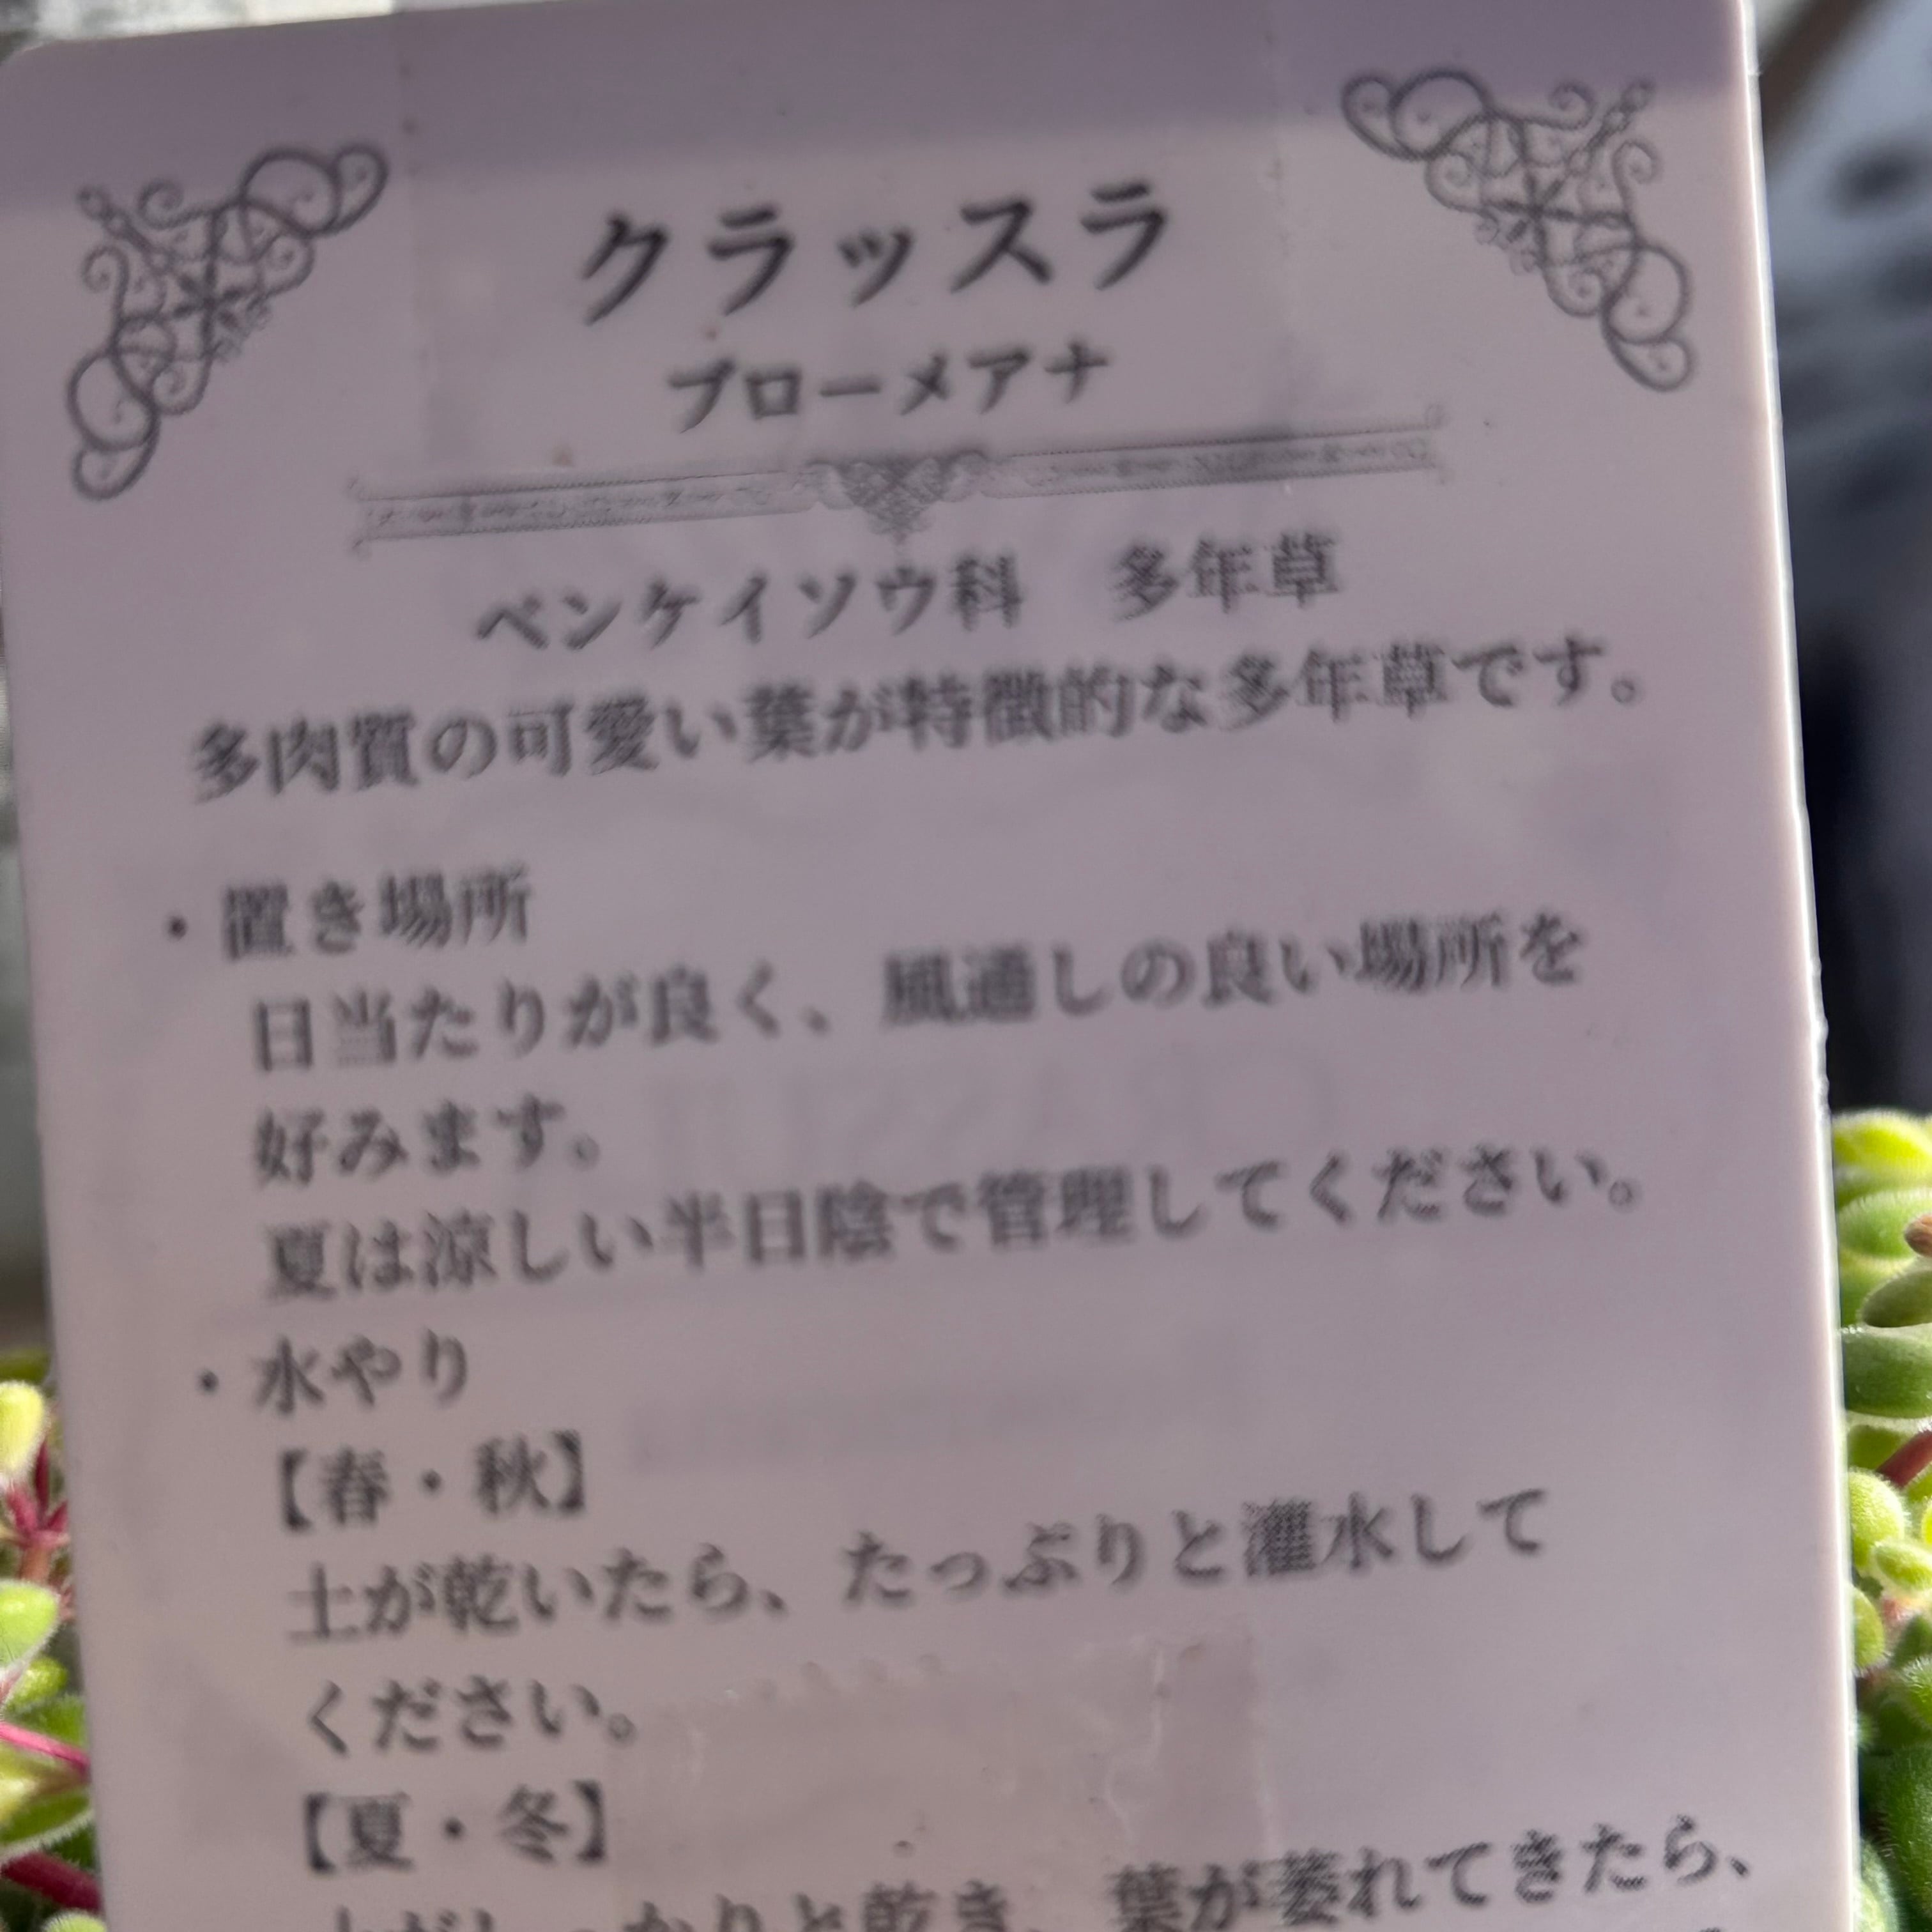 クラッスラ
ブローメアナ
ベンケイソウ科　多年草
多肉質の可愛い葉が特徴的な多年草です。
・置き場所
日当たりが良く、風通しの良い場所を
好みます。
夏は涼しい半日陰で管理してください。
・水やり
【春・秋】
土が乾いたら、たっぷりと灌水して
ください。
【夏・冬】
土がしっかりと乾き、葉が萎れてきたら、